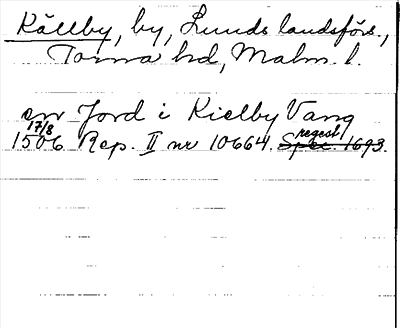 Källby, by, Lunds landsförs.,
Torna hd, Malm. l.
en Jord i Kielby Vang
17/8
1506 Rep. II nr 10664. Spec. regest 1693.